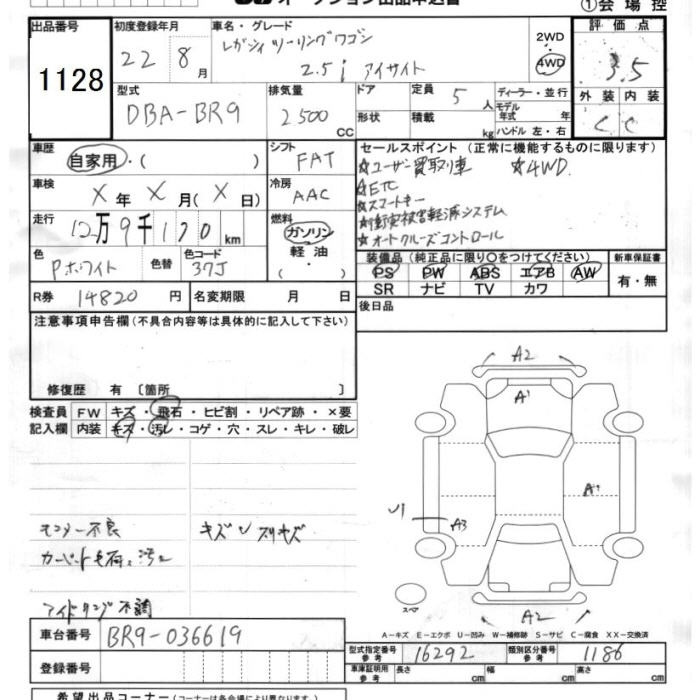 オークション出品申込書
①会場控
出品番号
1128
初度登録年月
22年8月
車名・グレード
レガシィツーリングワゴン
2.5i アイサイト
2WD
4WD
評価点
3.5
型式
DBA-BR9
排気量
2500
CC
ドア
定員
5
人
ディーラー・並行
モデル
年式
年
形状
積載
kg
ハンドル 左・右
外装
内装
C
C
車歴
自家用・( )
シフト
FAT
セールスポイント (正常に機能するものに限ります)
☆ユーザー買取り車 ☆4WD
☆ETC
☆スマートキー
☆衝突被害軽減システム
☆オートクルーズコントロール
車検
X年X月(X日)
冷房
AAC
走行
12万9千170km
燃料
ガソリン
軽油
・
色
Pホワイト
色替
色コード
37J
装備品(純正品に限り○をつけてください)
PS PW ABS エアB AW
SR ナビ TV カワ
新車保証書
有・無
R券
14820円
名変期限
月 日
後日品
注意事項申告欄(不具合内容等は具体的に記入して下さい)
修復歴 有 〔箇所 〕
検査員
記入欄
FW
キズ・飛石・ヒビ割・リペア跡・×要
内装
キズ・汚レ・コゲ・穴・スレ・キレ・破レ
モニター不良
キズUスリキズ
アイドリング不調
A2
A1
A1
U1
A3
A2
スペア
A-キズ E-エクボ U-凹み W-補修跡 S-サビ C-腐食 XX-交換済
車台番号
BR9-036619
登録番号
型式指定番号
参考
16292
類別区分番号
参考
1186
車庫証明用
参考
長さ
cm
幅
cm
高さ
cm
希望出品コーナー(コーナーは各会場により異なります)